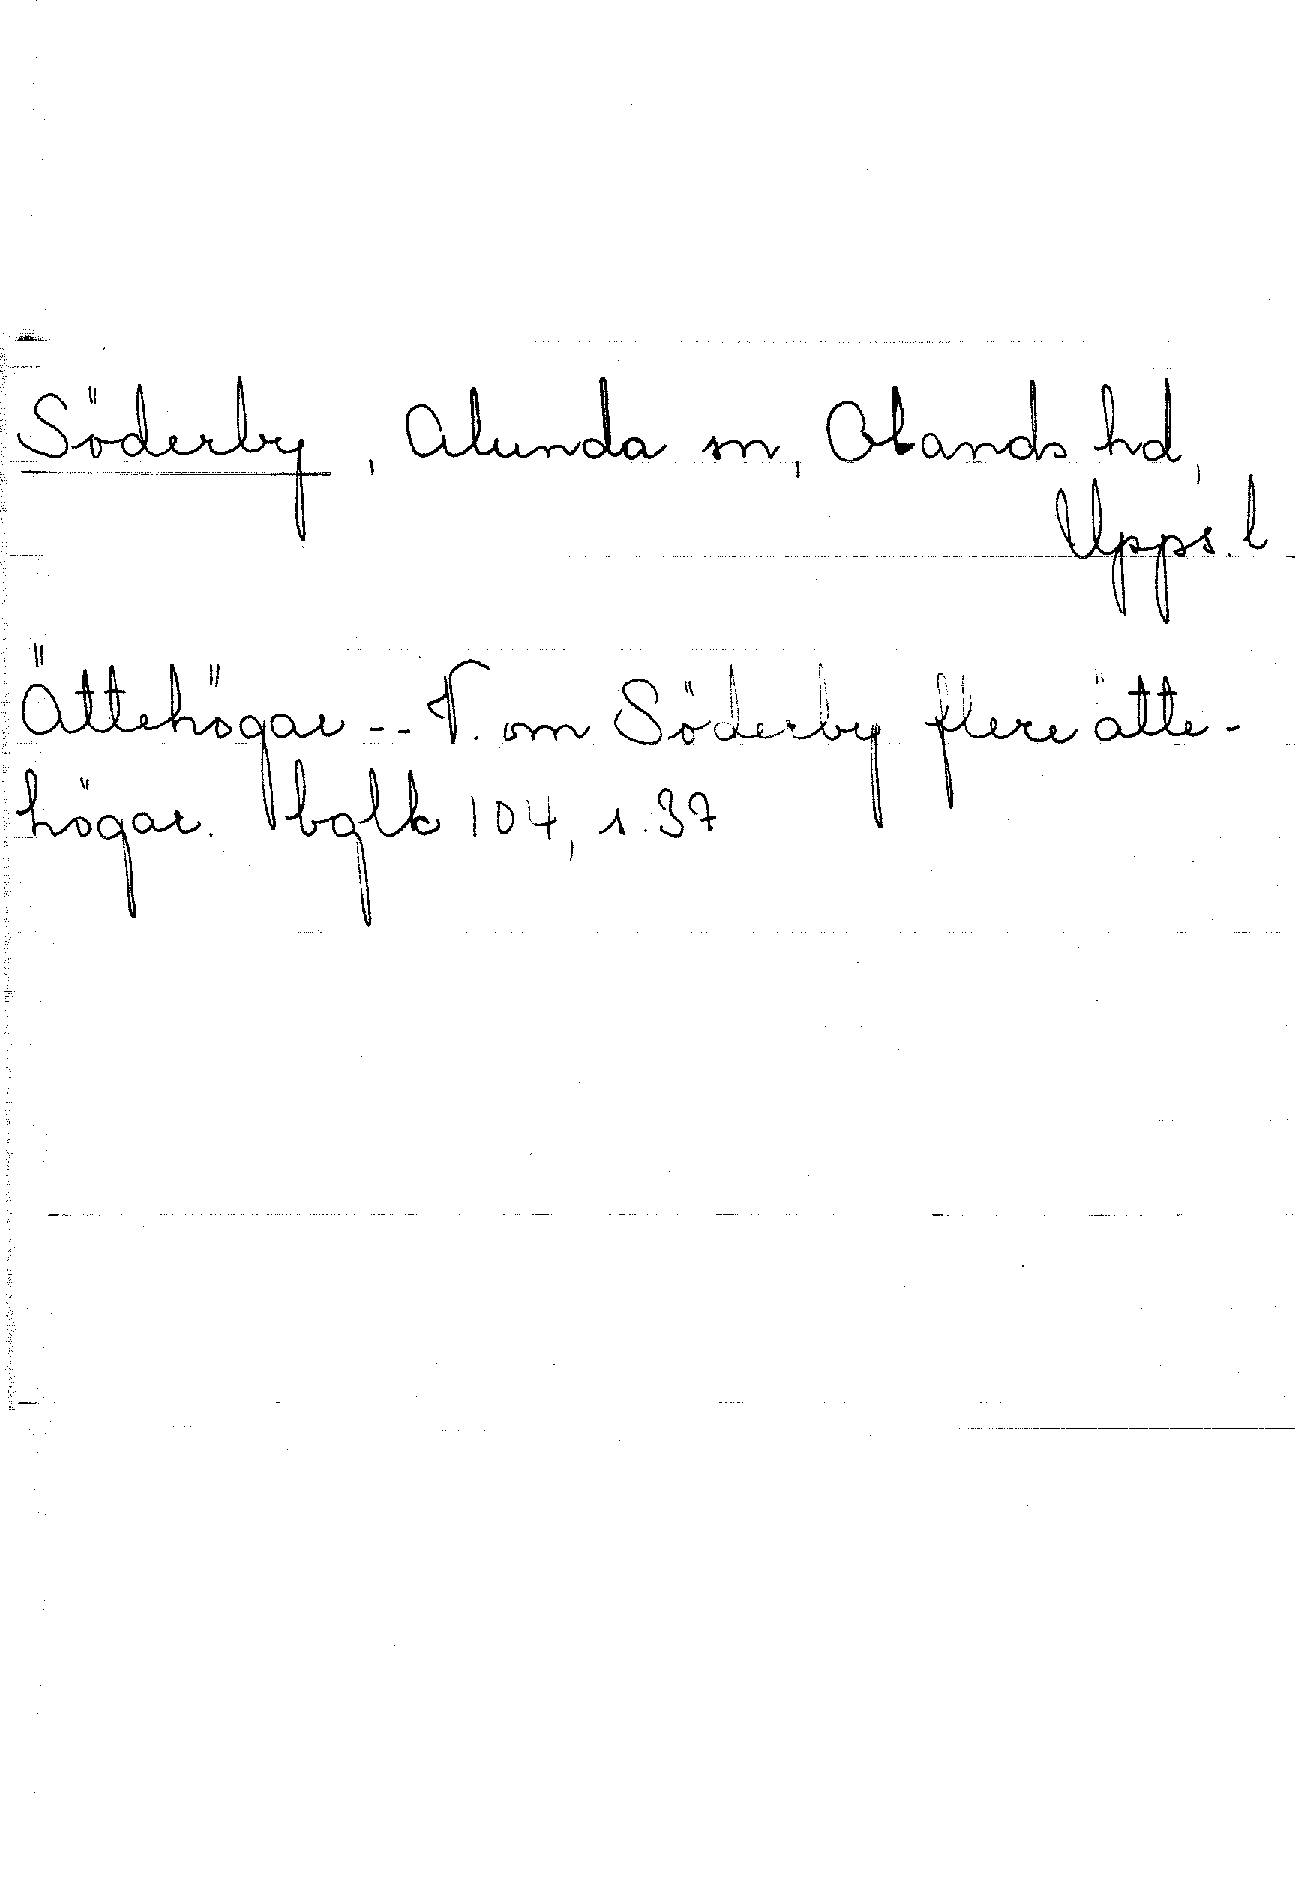 Söderby, Alunda sn, Olands hd,
Upps. l
Ättehögar -- V. om Söderby flere ätte-
högar. bglk 104, s. 37